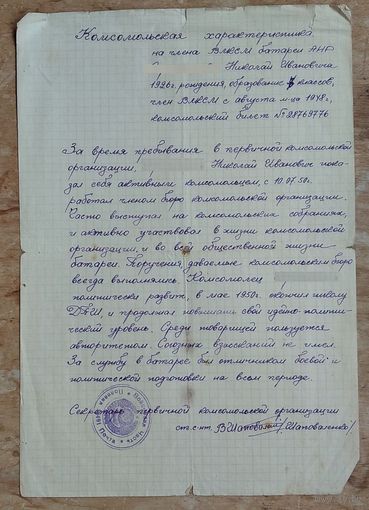 Комсомольская характеристика
на члена ВЛКСМ батареи АИР
Николая Ивановича
1926 г. рождения, образование 7 классов,
член ВЛКСМ с августа м-ца 1948 г.,
комсомольский билет № 28769776
За время пребывания в первичной комсомольской
организации, Николай Иванович пока-
зал себя активным комсомольцем, с 10.07.50 г.
работал членом бюро комсомольской организации.
Часто выступал на комсомольских собраниях,
и активно участвовал в жизни комсомольской
организации, и во всей общественной жизни
батареи. Поручения, даваемые комсомольским бюро
всегда выполнялись. Комсомолец
политически развит, в мае 1950 г. окончил школу
ДПШ, и продолжал повышать свой идейно-полити-
ческий уровень. Среди товарищей пользуется
авторитетом. Союзных взысканий не имел.
За службу в батарее был отличником боевой и
политической подготовки на всем периоде.
Секретарь первичной комсомольской организации
ст. с-нт. ВШаповален /Шаповаленко/